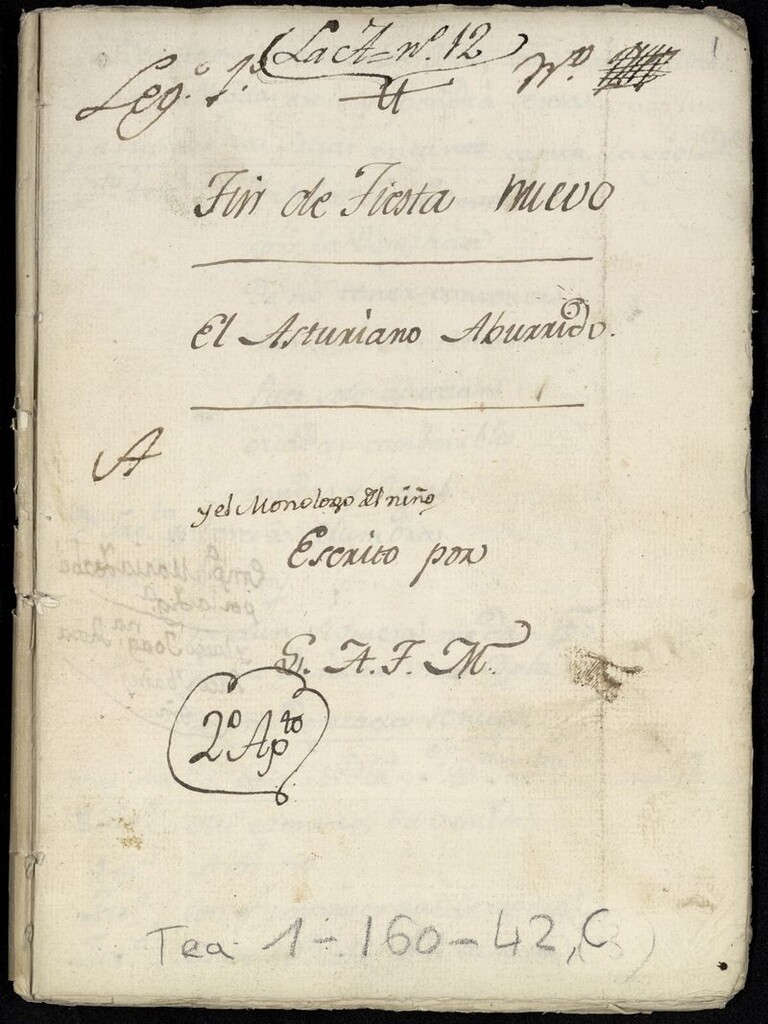 Leg.º 1.º La A = nº. 12 Nº.
1
Fin de Fiesta nuevo
El Asturiano Aburrido.
A
y el Monologo del niño
Escrito por
G. A. F. M.
2º Apto
Tea 1-160-42, C